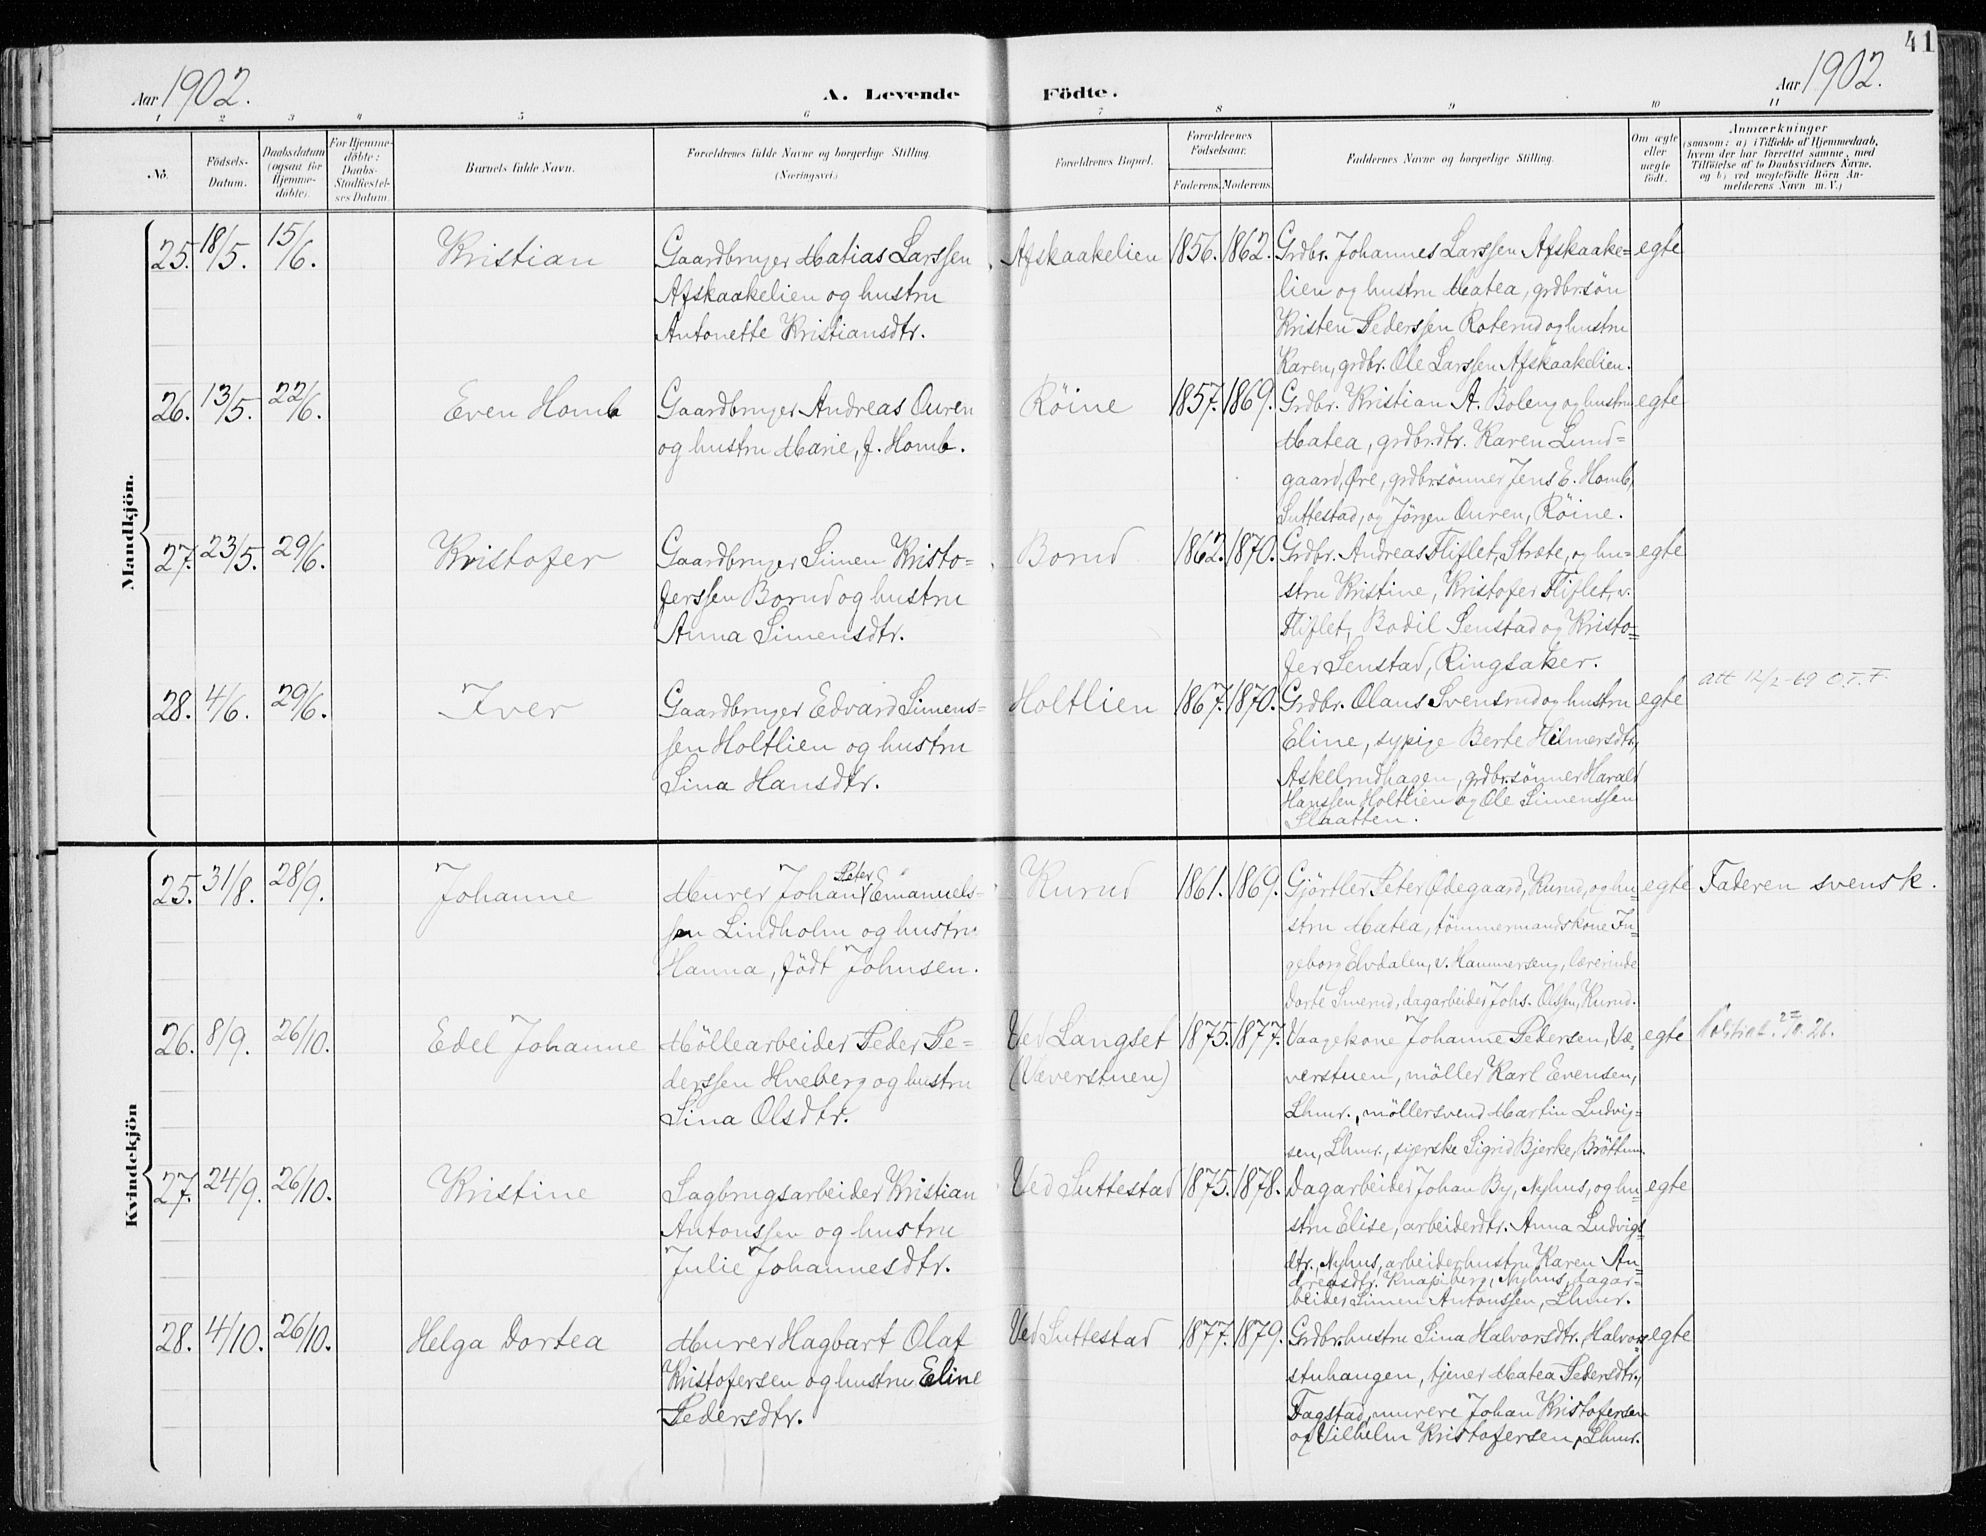 41
Aar 1902.
A. Levende Födte.
Aar 1902.
1 2 3 4 5 6 7 8 9 10 11
No.
Födsels-Datum.
Daabsdatum (ogsaa for Hjemmedöbte).
For Hjemmedöbte: Daabs-Stadfæstelses Datum.
Barnets fulde Navn.
Forældrenes fulde Navne og borgerlige Stilling.
(Næringsvei.)
Forældrenes Bopæl.
Forældrenes Födselsaar.
Faderens. Moderens.
Faddernes Navne og borgerlige Stilling.
Om ægte eller uægte födt.
Anmærkninger
(saasom: a) i Tilfælde af Hjemmedaab,
hvem der har forrettet samme, med
Tilföielse af to Daabsvidners Navne,
og b) ved uægtefödte Börn Anmelderens Navn m. V.)
Mandkjön.
25. 18/5. 15/6. Kristian
Gaardbruger Matias Larssen
Afskaakelien og hustru
Antonette Kristiansdtr.
Afskaakelien 1856. 1862.
Grdbr. Johannes Larssen Afskaake=
lien og hustru Matea, grdbr.søn
Kristen Pederssen Roterud og hustru
Karen, grdbr. Ole Larssen Afskaakelien.
egte
26. 13/5. 22/6. Even Homb
Gaardbruger Andreas Ouren
og hustru Marie, f. Homb.
Røine 1857. 1869.
Grdbr. Kristian A. Boleng og hustru
Matea, grdbr.dtr. Karen Lund=
gaard, Øre, grdbr.sønner Jens E. Homb,
Suttestad, og Jörgen Ouren, Røine.
egte
27. 23/5. 29/6. Kristofer
Gaardbruger Simen Kristo=
ferssen Borud og hustru
Anna Simensdtr.
Borud 1862. 1870.
Grdbr. Andreas Fliflet, Stræte, og hu=
stru Kristine, Kristofer Fliflet, v.
Fliflet, Bodil Senstad og Kristo=
fer Senstad, Ringsaker.
egte
28. 4/6. 29/6. Iver
Gaardbruger Edvard Simens=
sen Holtlien og hustru
Sina Hansdtr.
Holtlien 1867. 1870.
Grdbr. Olaus Svensrud og hustru
Eline, sypige Berte Hilmersdtr,
Askelrudhagen, grdbr.sønner Harald
Hanssen Holtlien og Ole Simenssen
Slaatten.
egte
att 12/2-69 O.T.F.
Kvindekjön
25. 31/8. 28/9. Johanne
Murer Johan Peter Emanuels=
sen Lindholm og hustru
Hanna, født Johnsen.
Kurud 1861. 1869.
Gjörtler Peter Ødegaard, Kurud, og hu=
stru Matea, tömmermandskone In=
geborg Elvdalen, v. Hammerseng, lærerinde
Dorte Smerud, dagarbeider Johs. Olssen, Kurud.
egte
Faderen svensk.
26. 8/9. 26/10. Edel Johanne
Möllearbeider Peder Pe=
derssen Hveberg og hustru
Sina Olsdtr.
Ved Langset
(Væverstuen)
1875. 1877.
Vaagekone Johanne Pedersen, Væ=
verstuen, möller Karl Evensen,
Lhmr., möllersvend Martin Ludvig=
sen, Lhmr., syerske Sigrid Bjerke, Bröttum.
egte
27. 24/9. 26/10. Kristine
Sagbrugsarbeider Kristian
Antonssen og hustru
Julie Johannesdtr.
Ved Suttestad 1875. 1878.
Dagarbeider Johan By, Nyhus, og hu=
stru Elise, arbeiderdtr. Anna Ludvigs=
dtr., Nyhus, arbeiderhustru Karen An=
dreasdtr. Knapiberg, Nyhus, dagar=
beider Simen Antonssen, Lhmr.
egte
28. 4/10. 26/10. Helga Dortea
Murer Hagbart Olaf
Kristofersen og hustru Eline
Pedersdtr.
Ved Suttestad 1877. 1879.
Grdbr.hustru Sina Halvorsdtr, Halvor=
stuhaugen, tjener Matea Pedersdtr.,
Fagstad, murere Johan Kristofersen
og Vilhelm Kristofersen, Lhmr.
egte